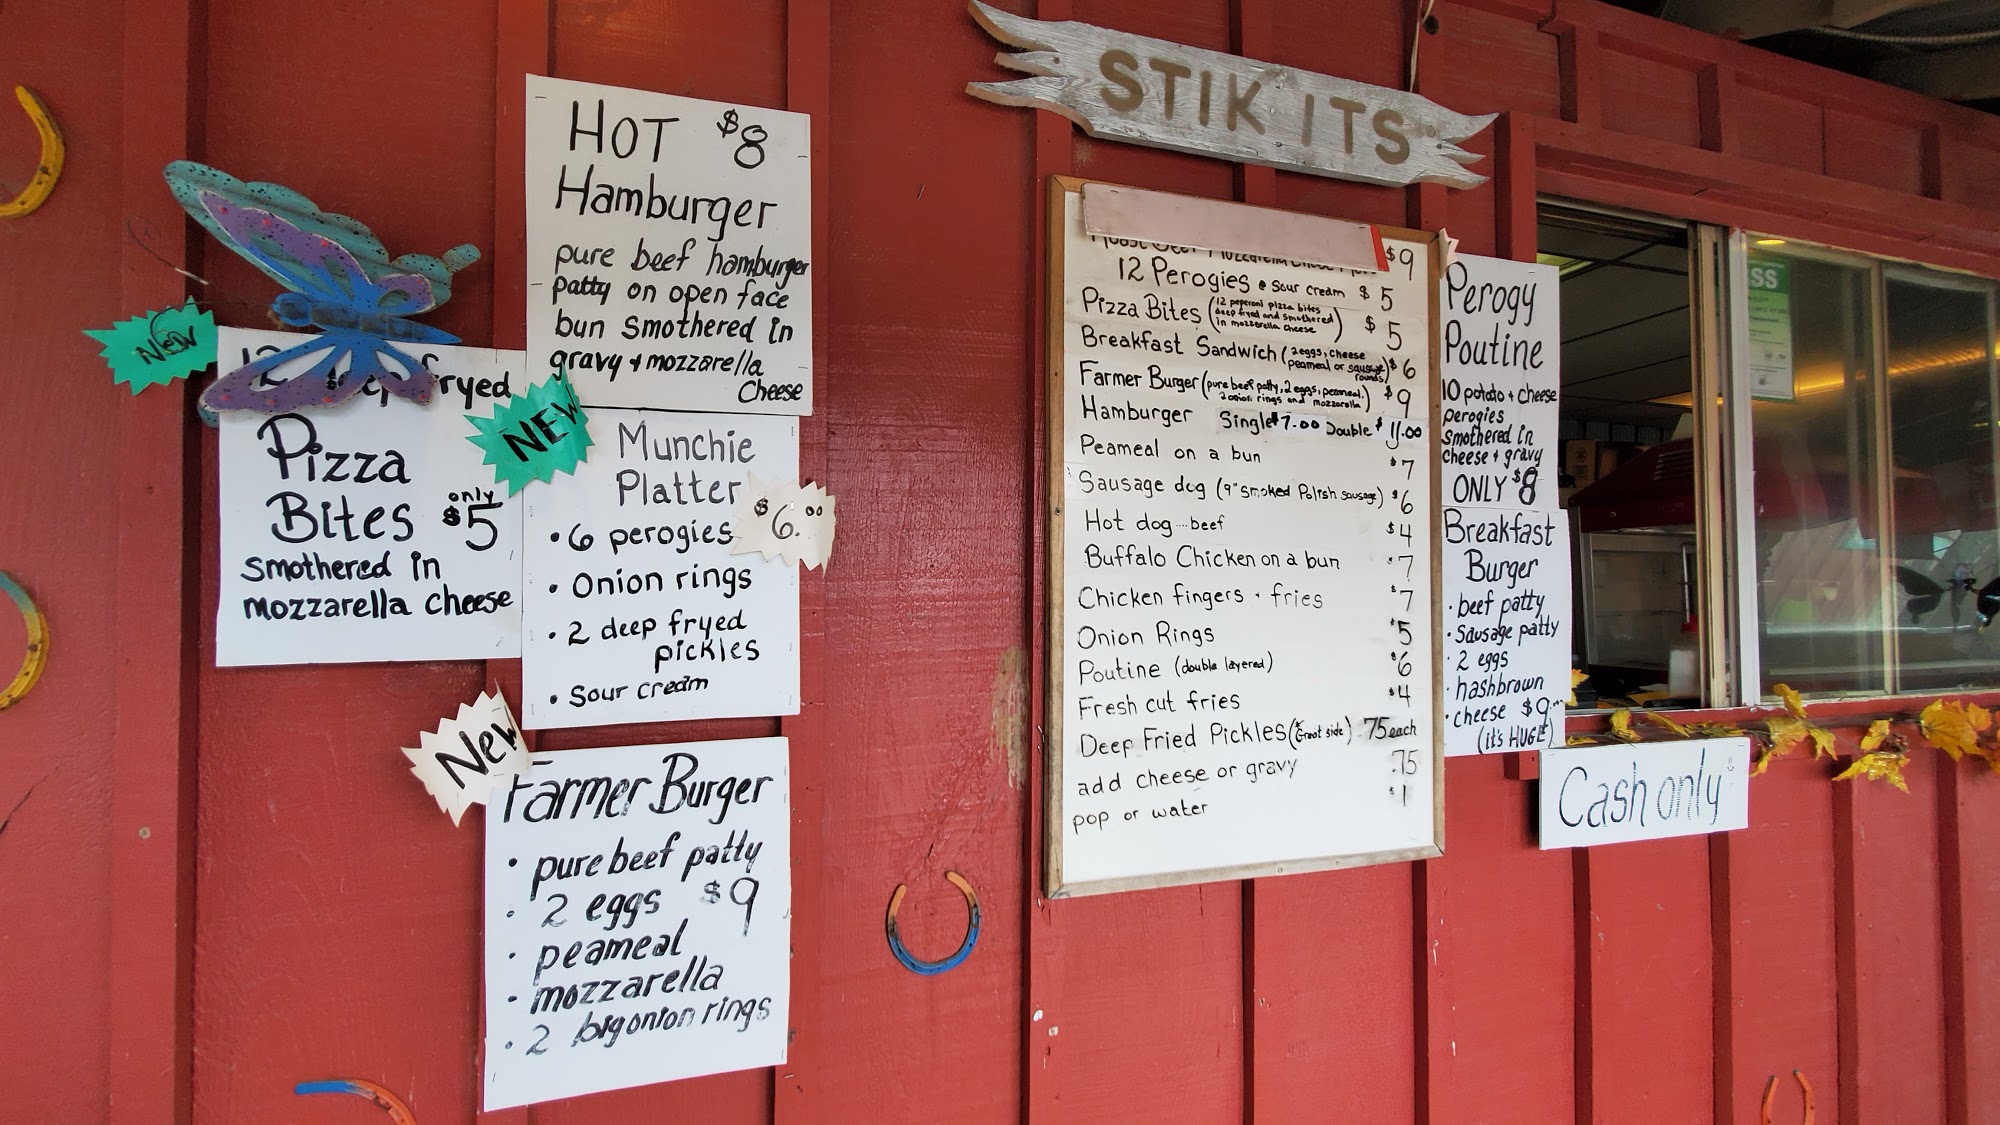 STIK ITS
NEW
12 deep fryed
Pizza
Bites only $5
smothered in
mozzarella cheese
HOT $8
Hamburger
pure beef hamburger
patty on open face
bun smothered in
gravy + mozzarella
cheese
NEW
Munchie
Platter
$6.00
• 6 perogies
• Onion rings
• 2 deep fryed
pickles
• Sour cream
New
Farmer Burger
• pure beef patty
• 2 eggs $9
• peameal
• mozzarella
• 2 big onion rings
$9
12 Perogies @ sour cream $5
Pizza Bites (12 peperoni pizza bites deep fryed and smothered in mozzarella cheese) $5
Breakfast Sandwich (2 eggs, cheese peameal or sausage rounds) $6
Farmer Burger (pure beef patty, 2 eggs, peameal, 2 onion rings and mozzarella) $9
Hamburger Single $7.00 Double $11.00
Peameal on a bun $7
Sausage dog (9" smoked Polish sausage) $6
Hot dog....beef $4
Buffalo Chicken on a bun $7
Chicken fingers + fries $7
Onion Rings $5
Poutine (double layered) $6
Fresh cut fries $4
Deep Fried Pickles (Great side) .75 each
add cheese or gravy .75
pop or water $1
Perogy
Poutine
10 potato + cheese
perogies
smothered in
cheese + gravy
ONLY $8
Breakfast
Burger
• beef patty
• sausage patty
• 2 eggs
• hashbrown
• cheese $9
(it's HUGE)
Cash only